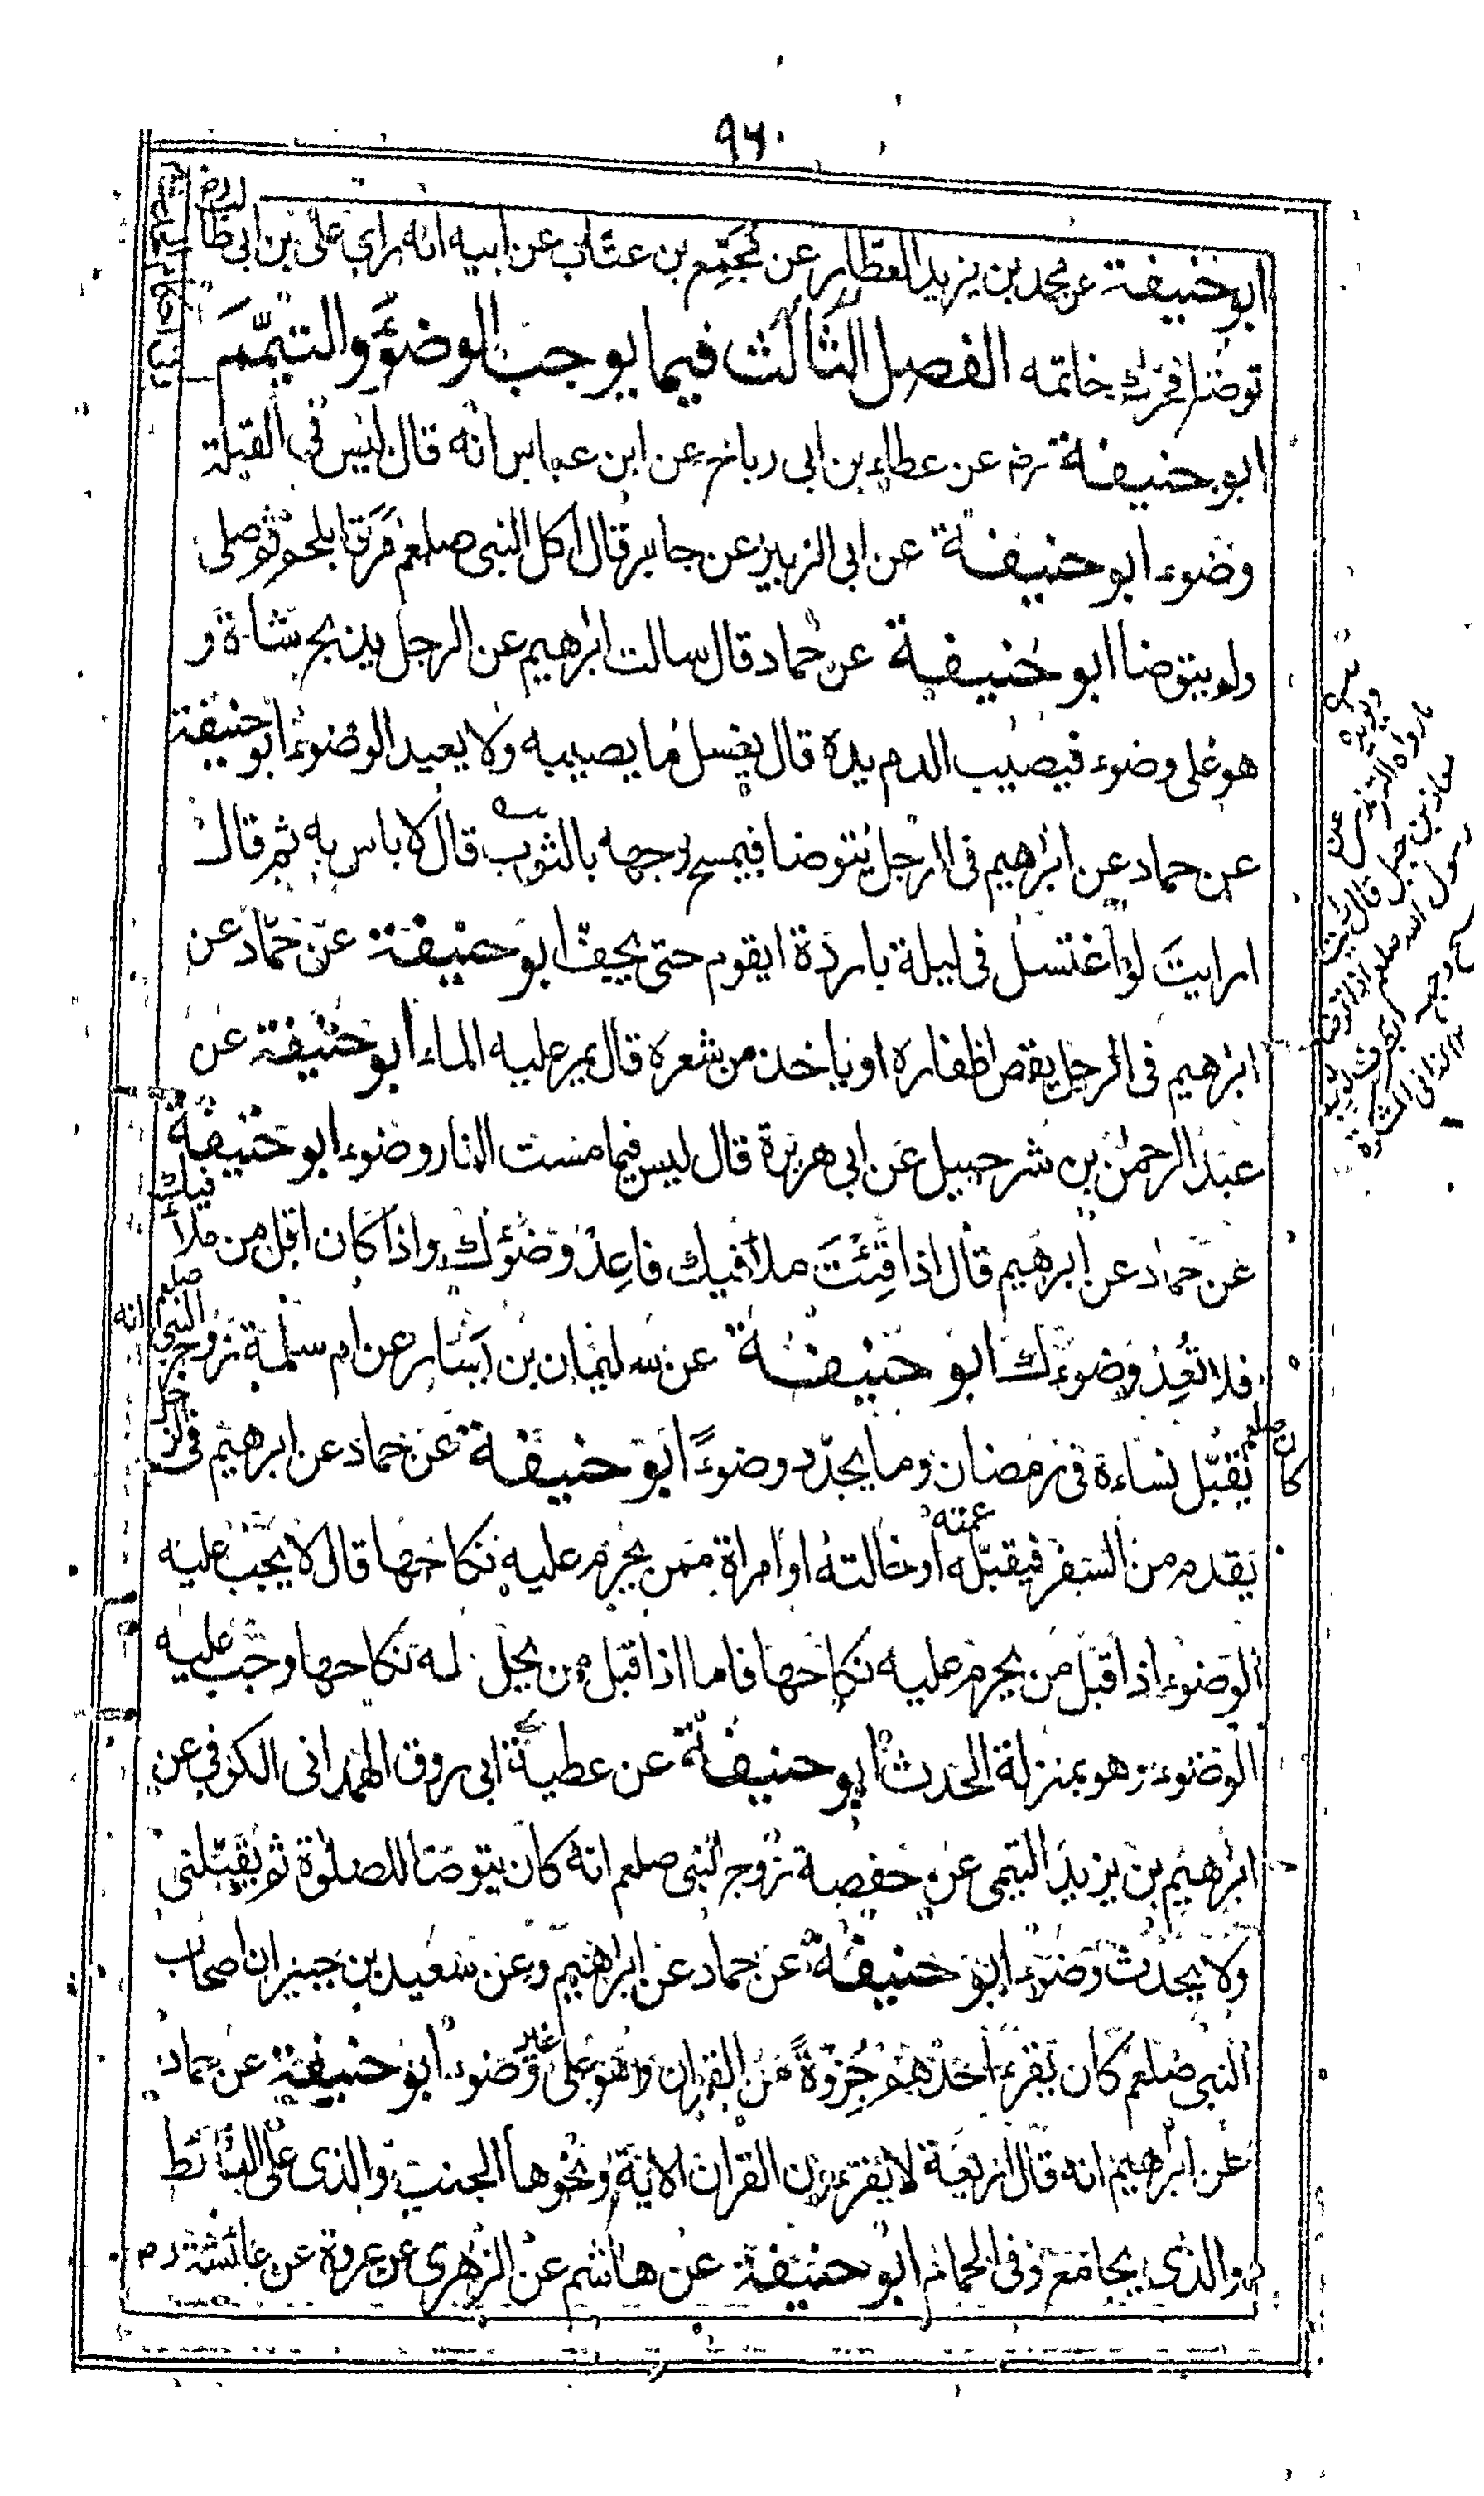 ٩٦٠
ابو حنيفة عن محمد بن يزيد العطار عن مجمع بن عتاب عن ابيه انه راى على بن ابى طالب رض
توضا فحرك خاتمه الفصل الثالث فيما يوجب الوضوء والتيمم
ابو حنيفة رض عن عطاء بن ابى رباح عن ابن عباس انه قال ليس فى القبلة
وضوء ابو حنيفة عن ابى الزبير عن جابر قال اكل النبى صلعم مرقا بلحم ثم صلى
ولم يتوضا ابو حنيفة عن حماد قال سالت ابرهيم عن الرجل يذبح شاة و
هو على وضوء فيصيب الدم يده قال يغسل ما يصيبه ولا يعيد الوضوء ابو حنيفة
عن حماد عن ابرهيم فى الرجل يتوضا فيمسح وجهه بالثوب قال لا باس به ثم قال
ارايت لو اغتسل فى ليلة باردة ايقوم حتى يجف ابو حنيفة عن حماد عن
ابرهيم فى الرجل يقص اظفاره او ياخذ من شعره قال يمر عليه الماء ابو حنيفة عن
عبد الرحمن بن شرحبيل عن ابى هريرة قال ليس فيما مست النار وضوء ابو حنيفة
عن حماد عن ابرهيم قال اذا قئت ملأ فيك فاعد وضوئك واذا كان اقل من ملأ فيك
فلا تعد وضوءك ابو حنيفة عن سليمان بن يسار عن ام سلمة زوج النبى صلعم انه
كان صلعم يقبل نساءه فى رمضان وما يجدد وضوءً ابو حنيفة عن حماد عن ابرهيم فى الرجل
يقدم من السفر فيقبله عمته او خالته او امراة ممن يحرم عليه نكاحها قال لا يجب عليه
الوضوء اذا قبل من يحرم عليه نكاحها فاما اذا قبل من يحل له نكاحها وجب عليه
الوضوء وهو بمنزلة الحدث ابو حنيفة عن عطية ابى روق الهمدانى الكوفى عن
ابرهيم بن يزيد التيمى عن حفصة زوج النبى صلعم انه كان يتوضا للصلوة ثم يقبلنى
ولا يحدث وضوء ابو حنيفة عن حماد عن ابرهيم وعن سعيد بن جبير ان اصحاب
النبى صلعم كان يقرء احدهم جزوه من القران وهو على غير وضوء ابو حنيفة عن حماد
عن ابرهيم انه قال اربعة لا يقرءون القران الاية ونحوها الجنب والذى على الغائط
والذى يجامع وفى الحمام ابو حنيفة عن هاشم عن الزهرى عن عروة عن عائشة رض